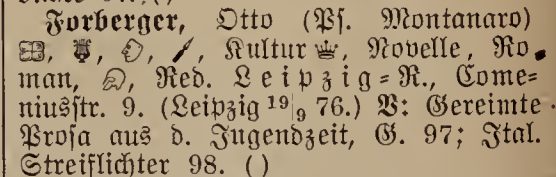 Forberger, Otto (Ps. Montanaro)
Kultur, Novelle, Ro-
man, Red. Leipzig=R., Come=
niusstr. 9. (Leipzig 19/9 76.) V: Gereimte
Prosa aus d. Jugendzeit, G. 97; Ital.
Streiflichter 98. ( )